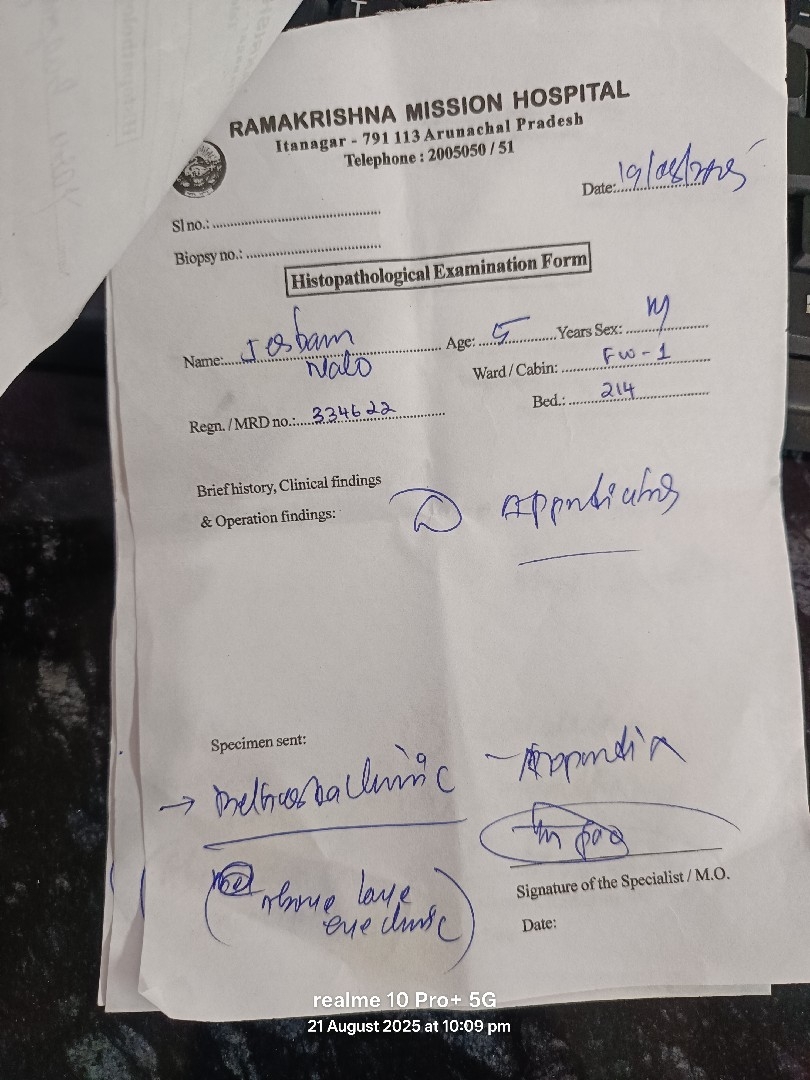 RAMAKRISHNA MISSION HOSPITAL
Itanagar - 791 113 Arunachal Pradesh
Telephone : 2005050 / 51
Date: 19/08/2025
Sl no.:
Biopsy no.:
Histopathological Examination Form
Name: Nalo
Age: 5 Years Sex: M
Ward / Cabin: FW-1
Regn. / MRD no.: 334622
Bed.: 214
Brief history, Clinical findings
& Operation findings:
Appendicitis
Specimen sent:
→ - Appendix
above
eye clinic
Signature of the Specialist / M.O.
Date:
realme 10 Pro+ 5G
21 August 2025 at 10:09 pm